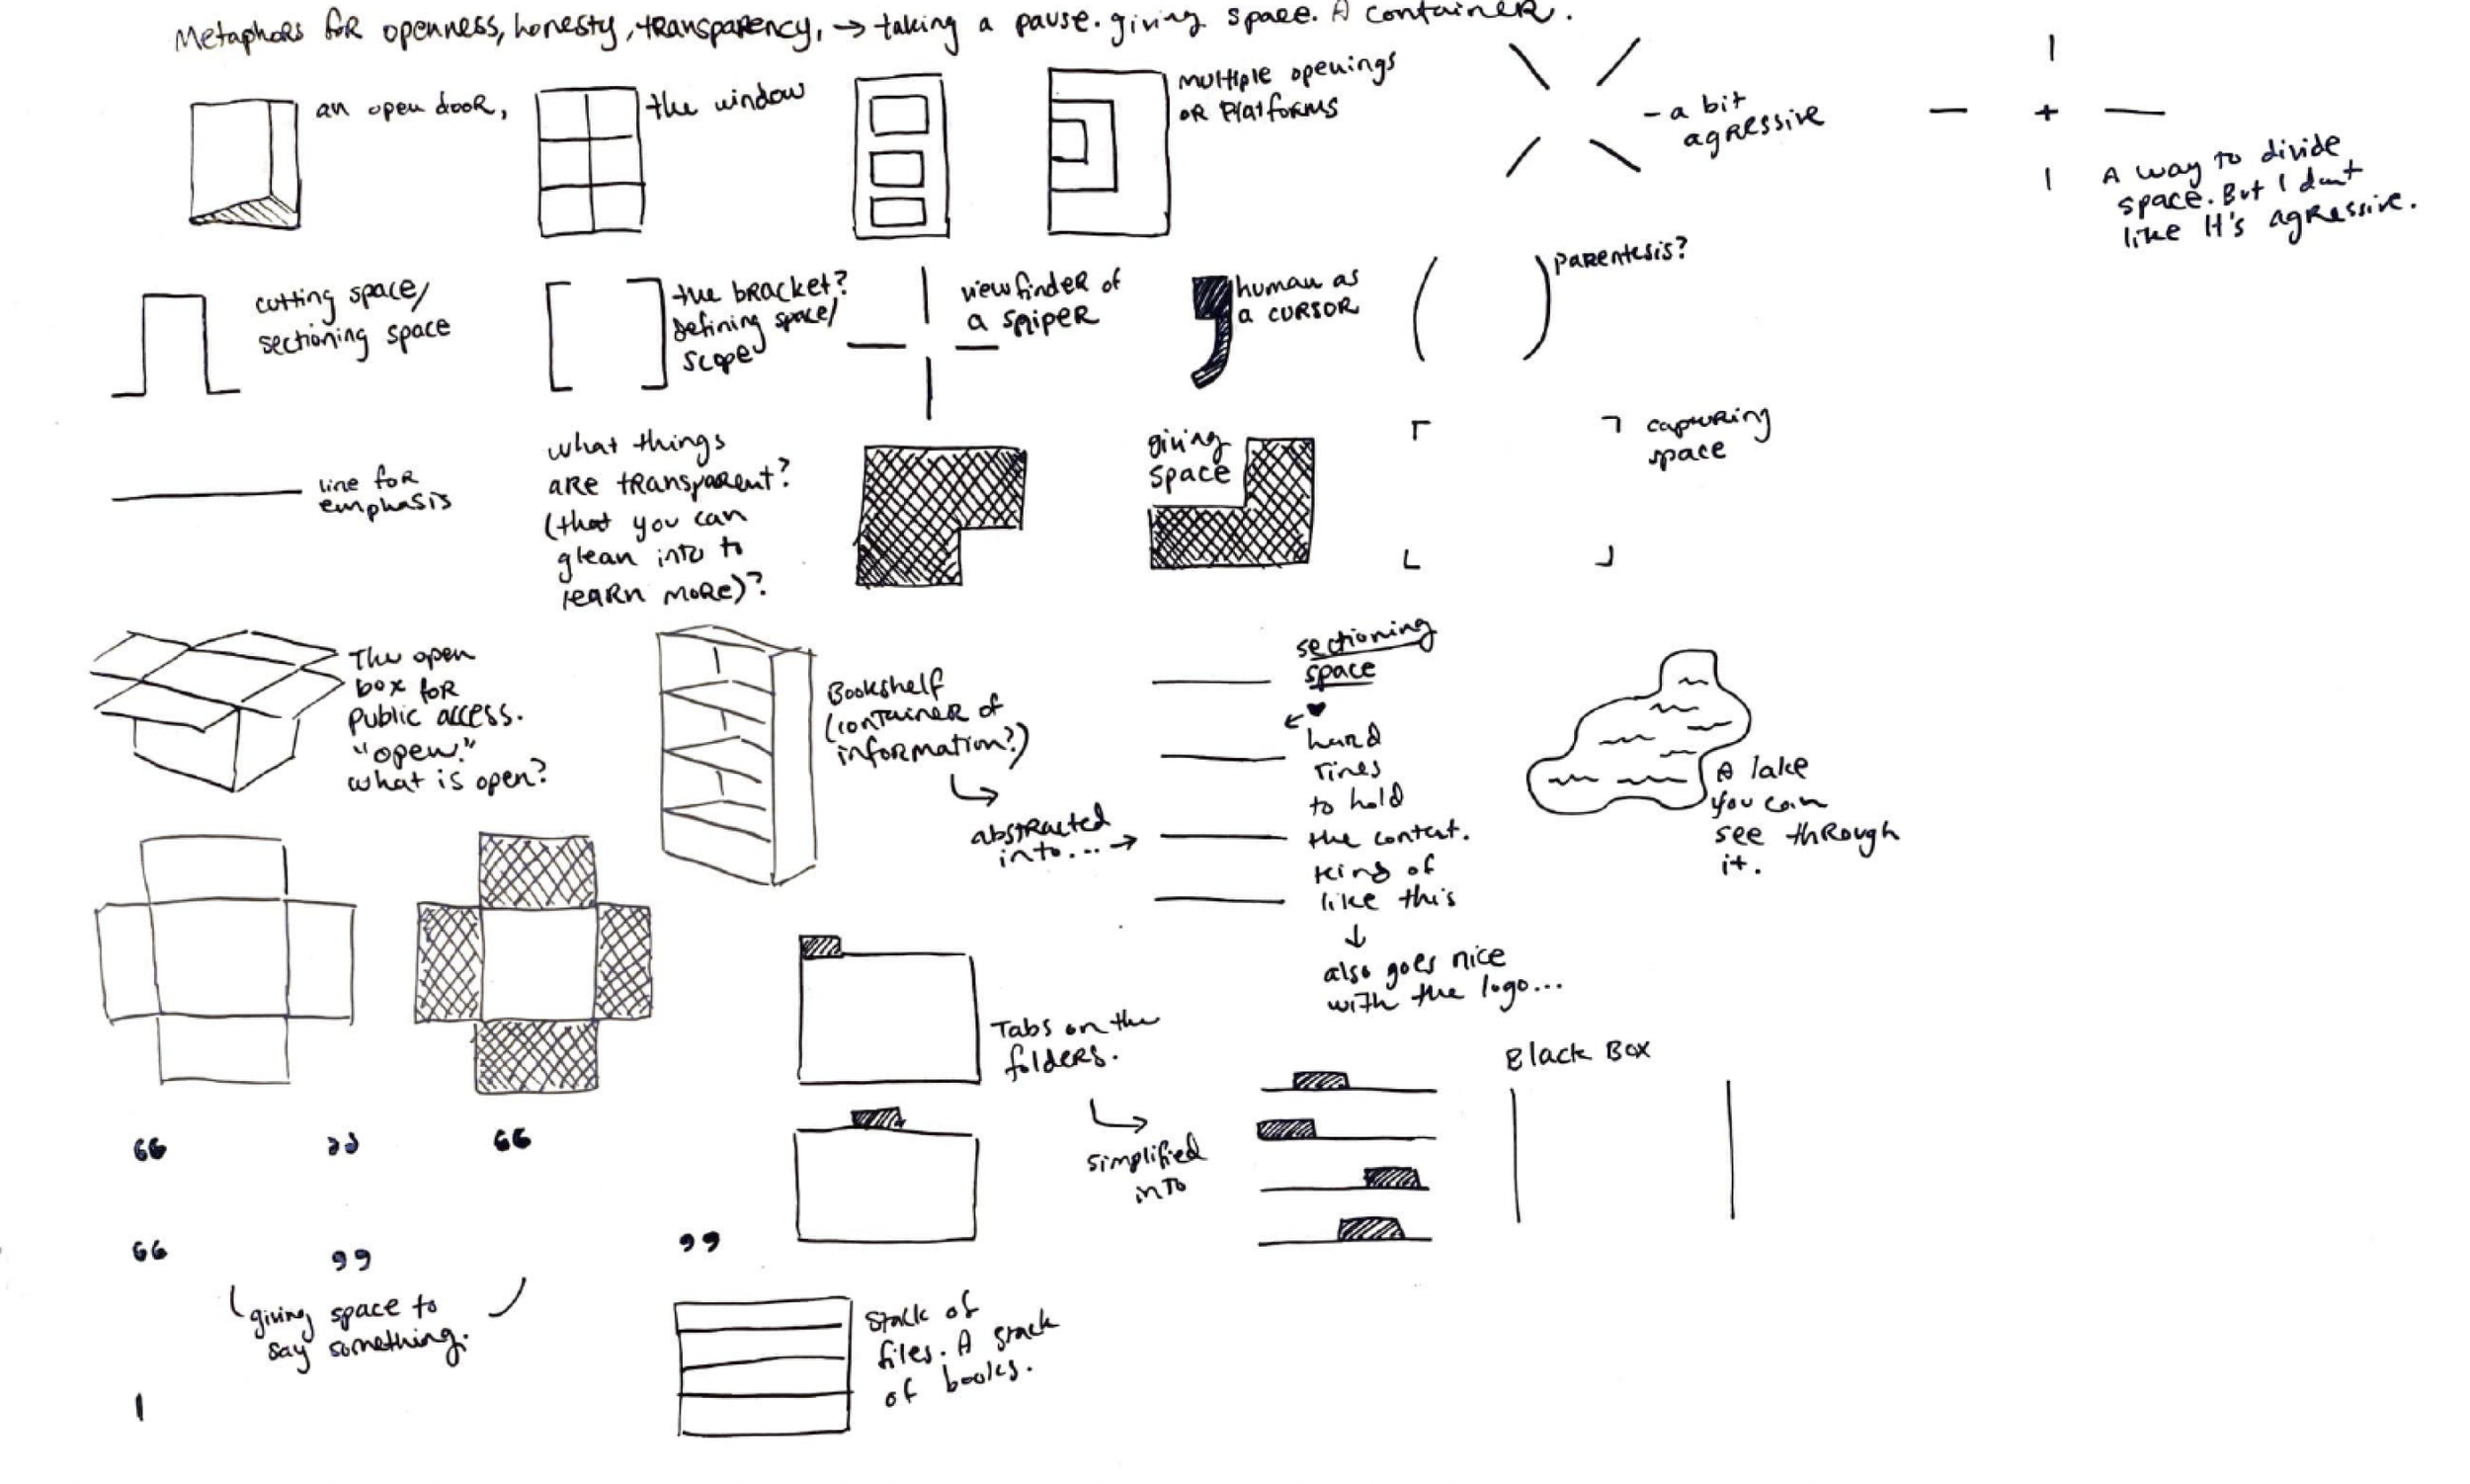 Metaphors for openness, honesty, transparency, → taking a pause. giving space. A container.
an open door,
the window
multiple openings
or Platforms
- a bit
agressive
A way to divide
space. But I dont
like It's agressive.
cutting space/
sectioning space
the bracket?
defining space/
scope
viewfinder of
a sniper
human as
a cursor
( ) parentesis?
line for
emphasis
what things
are transparent?
(that you can
glean into to
learn more)?
giving
space
capturing
space
The open
box for
public access.
"open."
what is open?
Bookshelf
(container of
information?)
abstracted
into... →
sectioning
space
← ♥
hard
lines
to hold
the content.
kind of
like this
↓
also goes nice
with the logo...
A lake
you can
see through
it.
Tabs on the
folders.
simplified
into
Black Box
“ ” “
“ ” ”
giving space to
say something.
Stack of
files. A stack
of books.